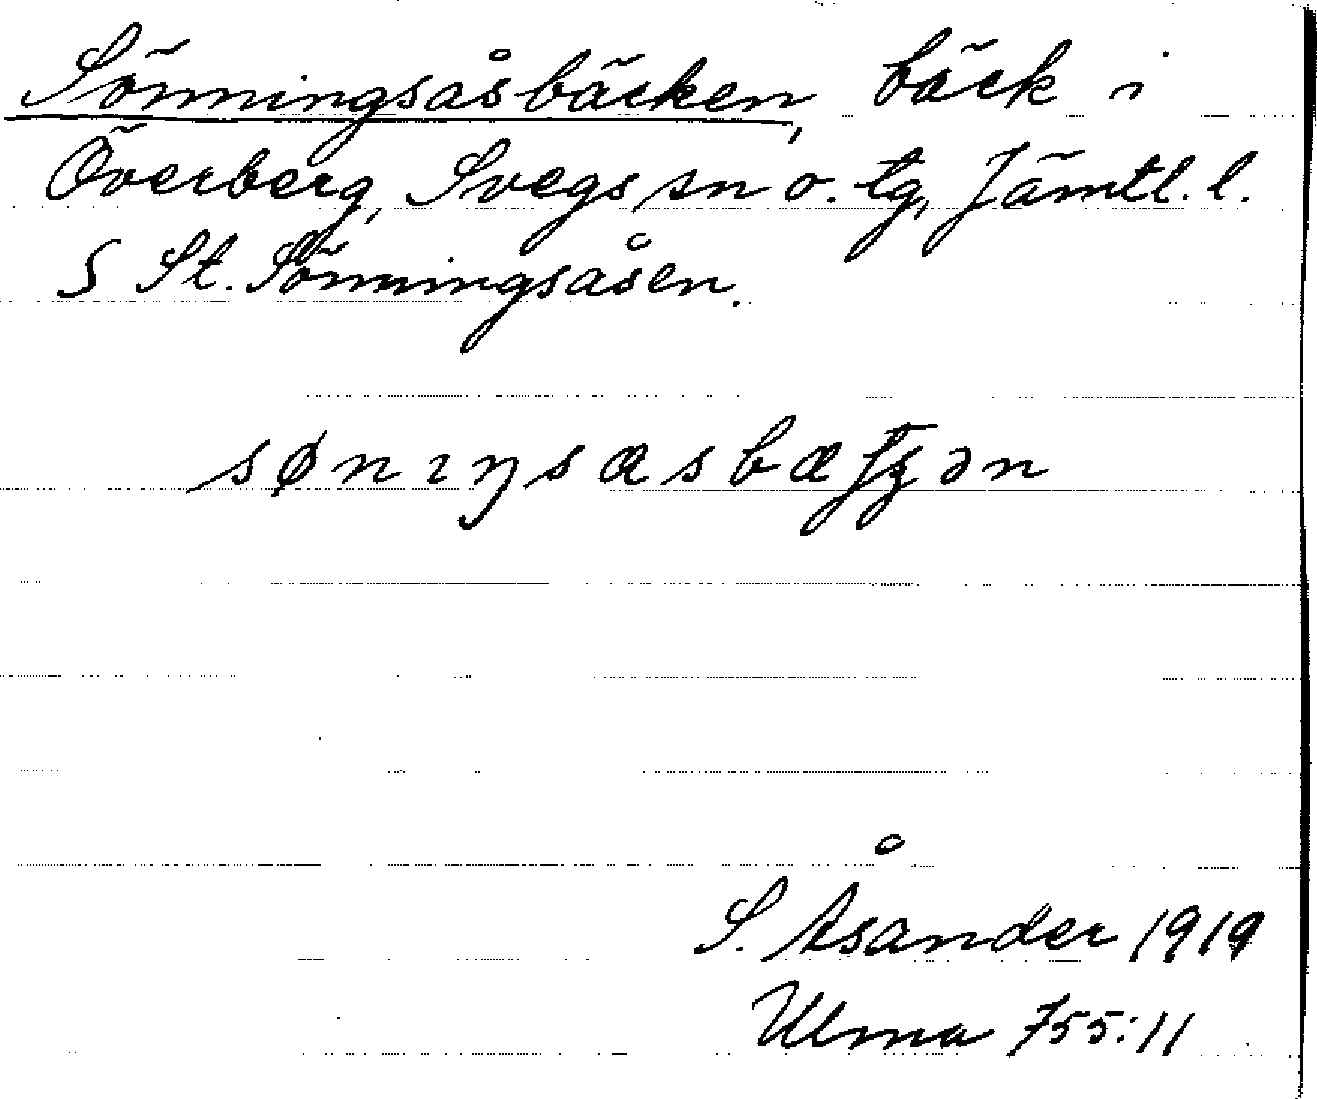 Sönningsåsbäcken, bäck i
Överberg, Svegs sn o. tg, Jämtl. l.
S St. Sönningsåsen.
sønıŋsasbæʃʒən
S. Åsander 1919
Ulma 755:11